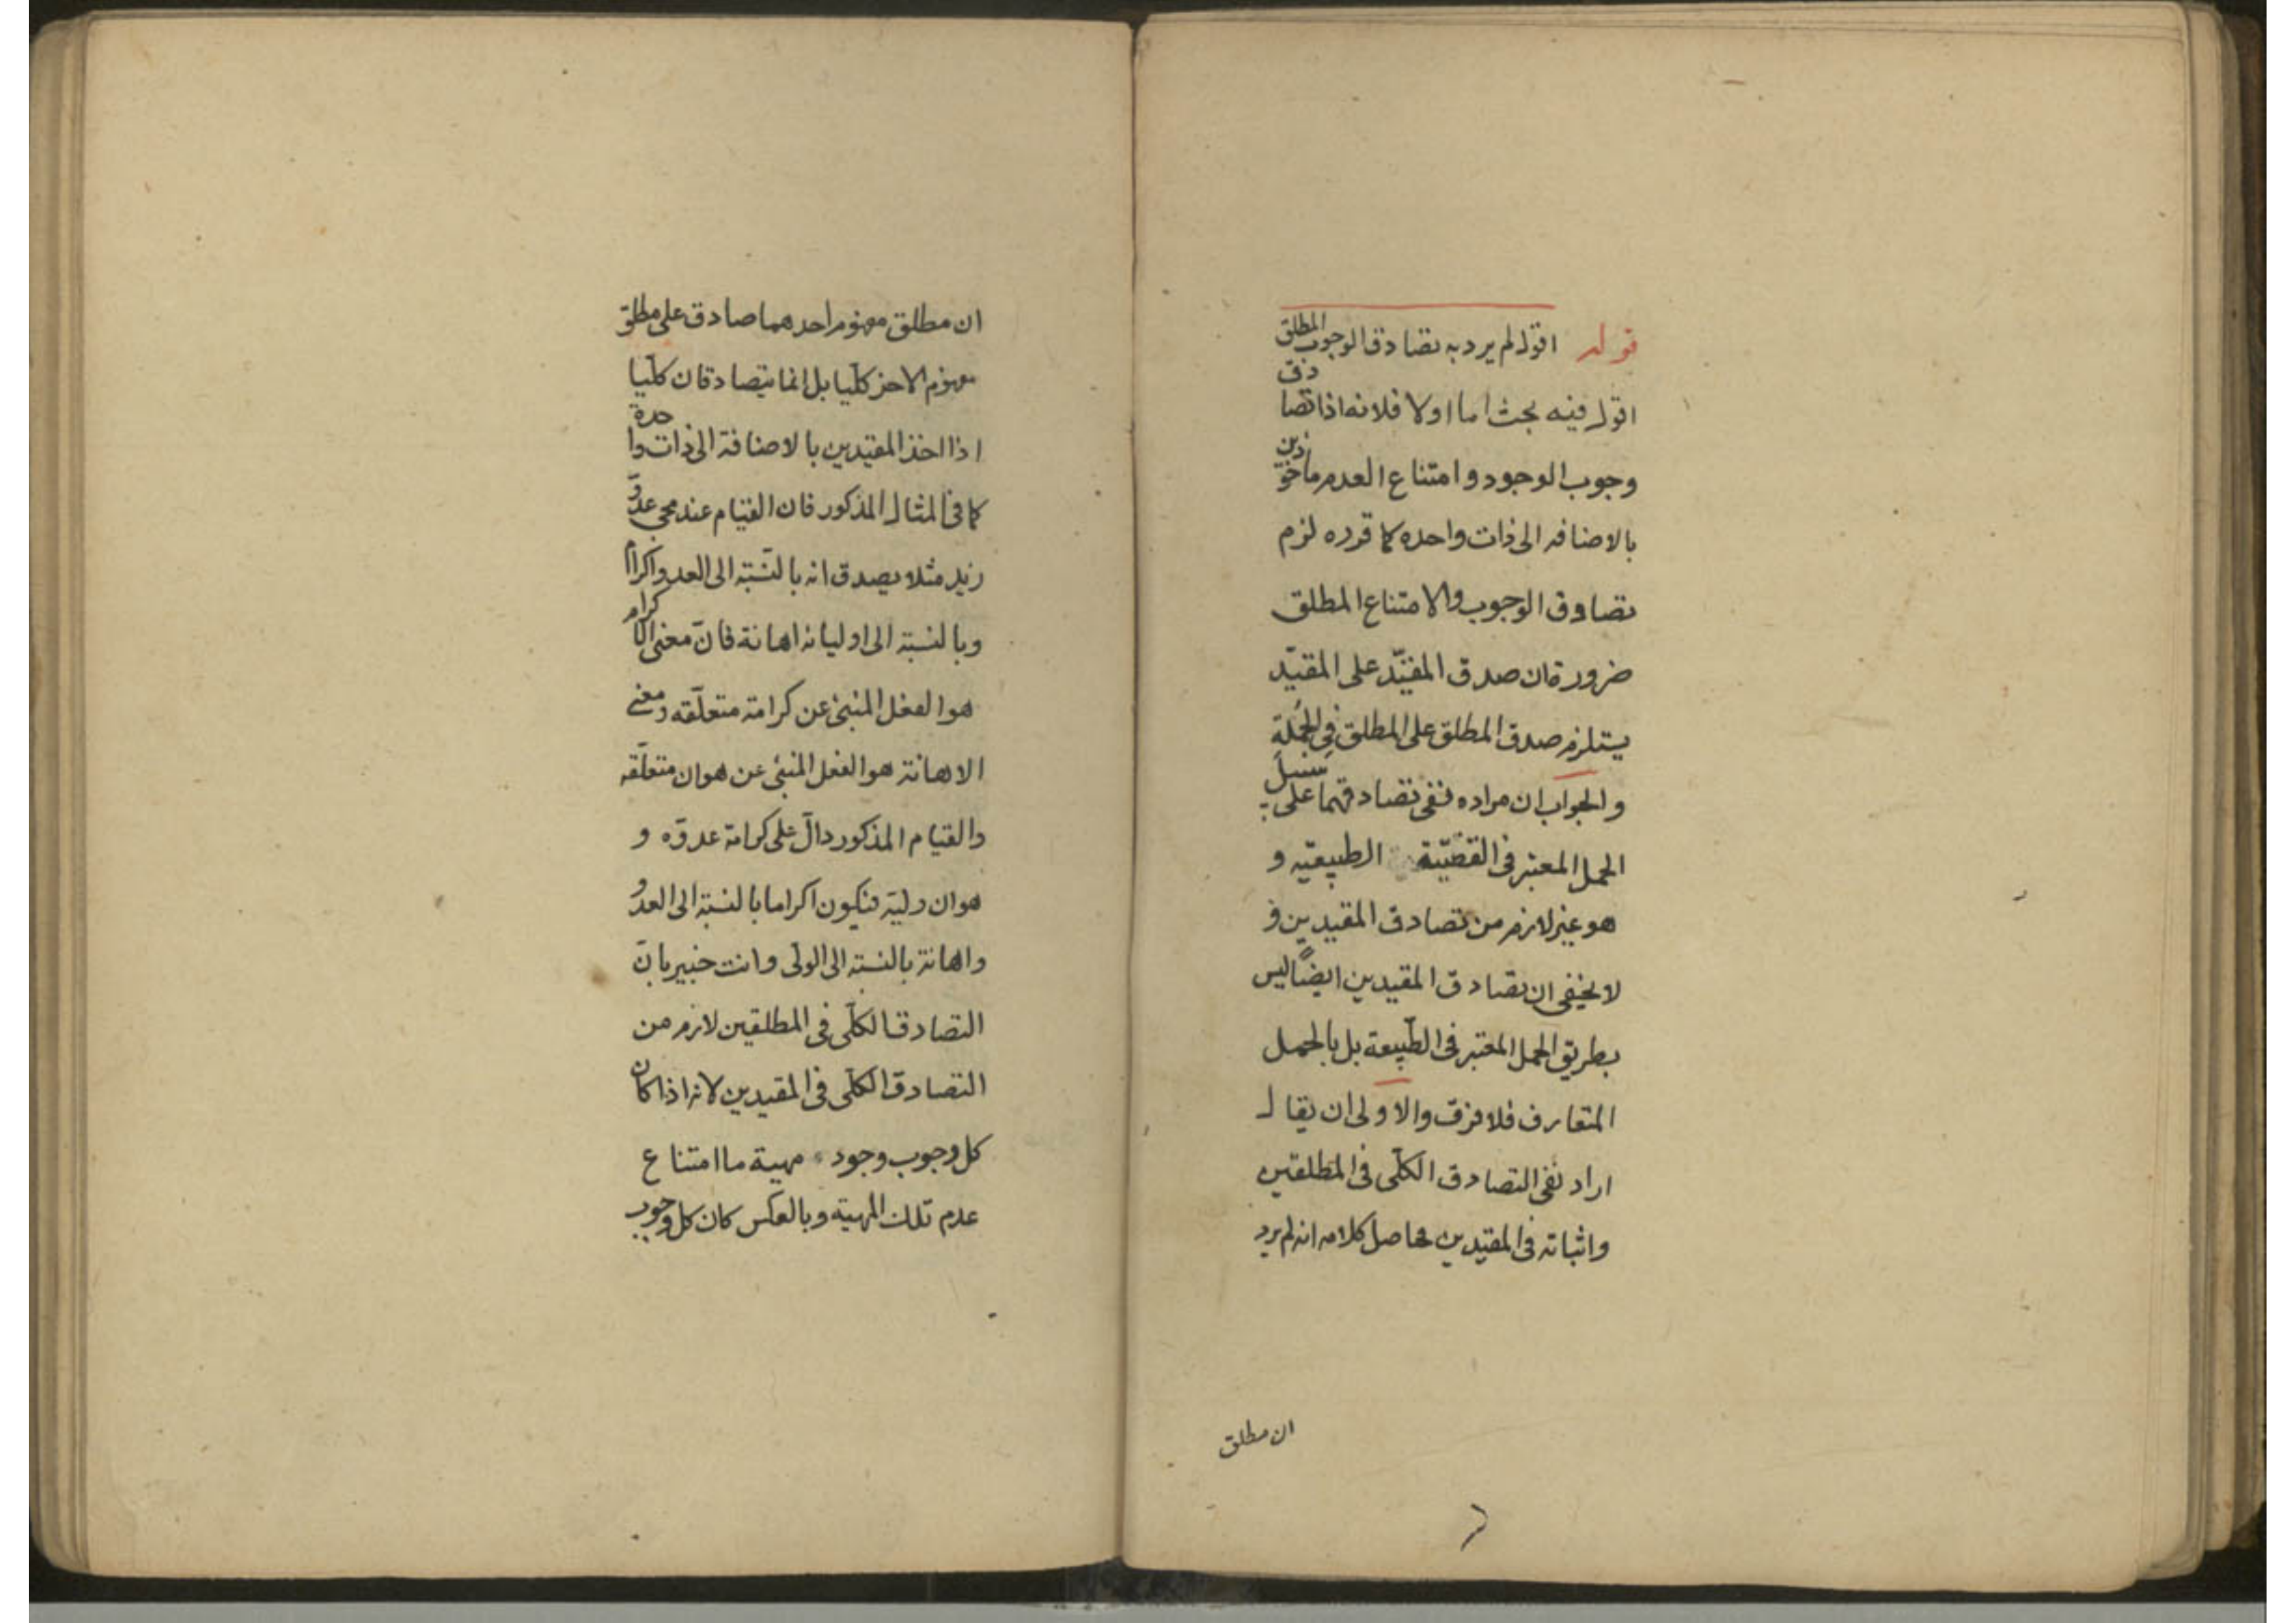 قوله اقول لم يرد به تصادق الوجوب المطلق
اقول فيه بحث اما اولا فلانه اذا تصادق
وجوب الوجود و امتناع العدم ماخوذين
بالاضافه الى ذات واحده كما قرره لزم
تصادق الوجوب والامتناع المطلق
ضرورة ان صدق المقيّد على المقيّد
يستلزم صدق المطلق على المطلق في الجُملةِ
والجواب ان مراده نفى تصادقهما على سبيل
الحمل المعتبر فى القضيّة الطبيعيّه و
هو غير لازم من تصادق المقيدين و
لا يخفى ان تصادق المقيدين ايضًا ليس
بطريق الحمل المعتبر فى الطّبيعة بل بالحمل
المتعارف فلا فرق والاولى ان يقال
اراد نفى التصادق الكلّى فى المطلقين
واثباته فى المقيّدين فحاصل كلامه انه لم يرد
ان مطلق
ان مطلق مفهوم احدهما صادق على مطلق
مفهوم الاخر كلّيا بل انما يتصادقان كلّيا
اذا اخذ المقيّدين بالاضافة الى ذات واحدة
كما فى المثال المذكور فان القيام عند مجى عدوّ
زيد مثلا يصدق انه بالنّسبة الى العدو اكرام
وبالنسبة الى اوليائه اهانة فانّ معنى الاكرام
هو الفعل المنبئ عن كرامة متعلّقه ومعنى
الاهانة هو الفعل المنبئ عن هوان متعلّقه
والقيام المذكور دالّ على كرامة عدوّه و
هوان وليّه فيكون اكراما بالنسبة الى العدو
واهانة بالنسبة الى الولى وانت خبير بانّ
التصادق الكلّى فى المطلقين لازم من
التصادق الكلّى فى المقيدين لانه اذا كان
كل وجوب وجود مهية ما امتناع
عدم تلك المهيّة وبالعكس كان كل وجوب